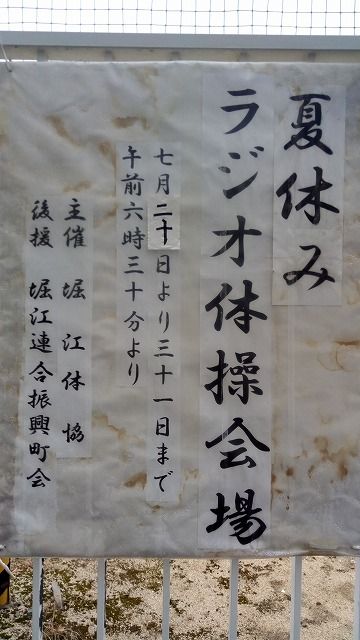 夏休み
ラジオ体操会場
七月二十日より三十一日まで
午前六時三十分より
主催 堀江体協
後援 堀江連合振興町会